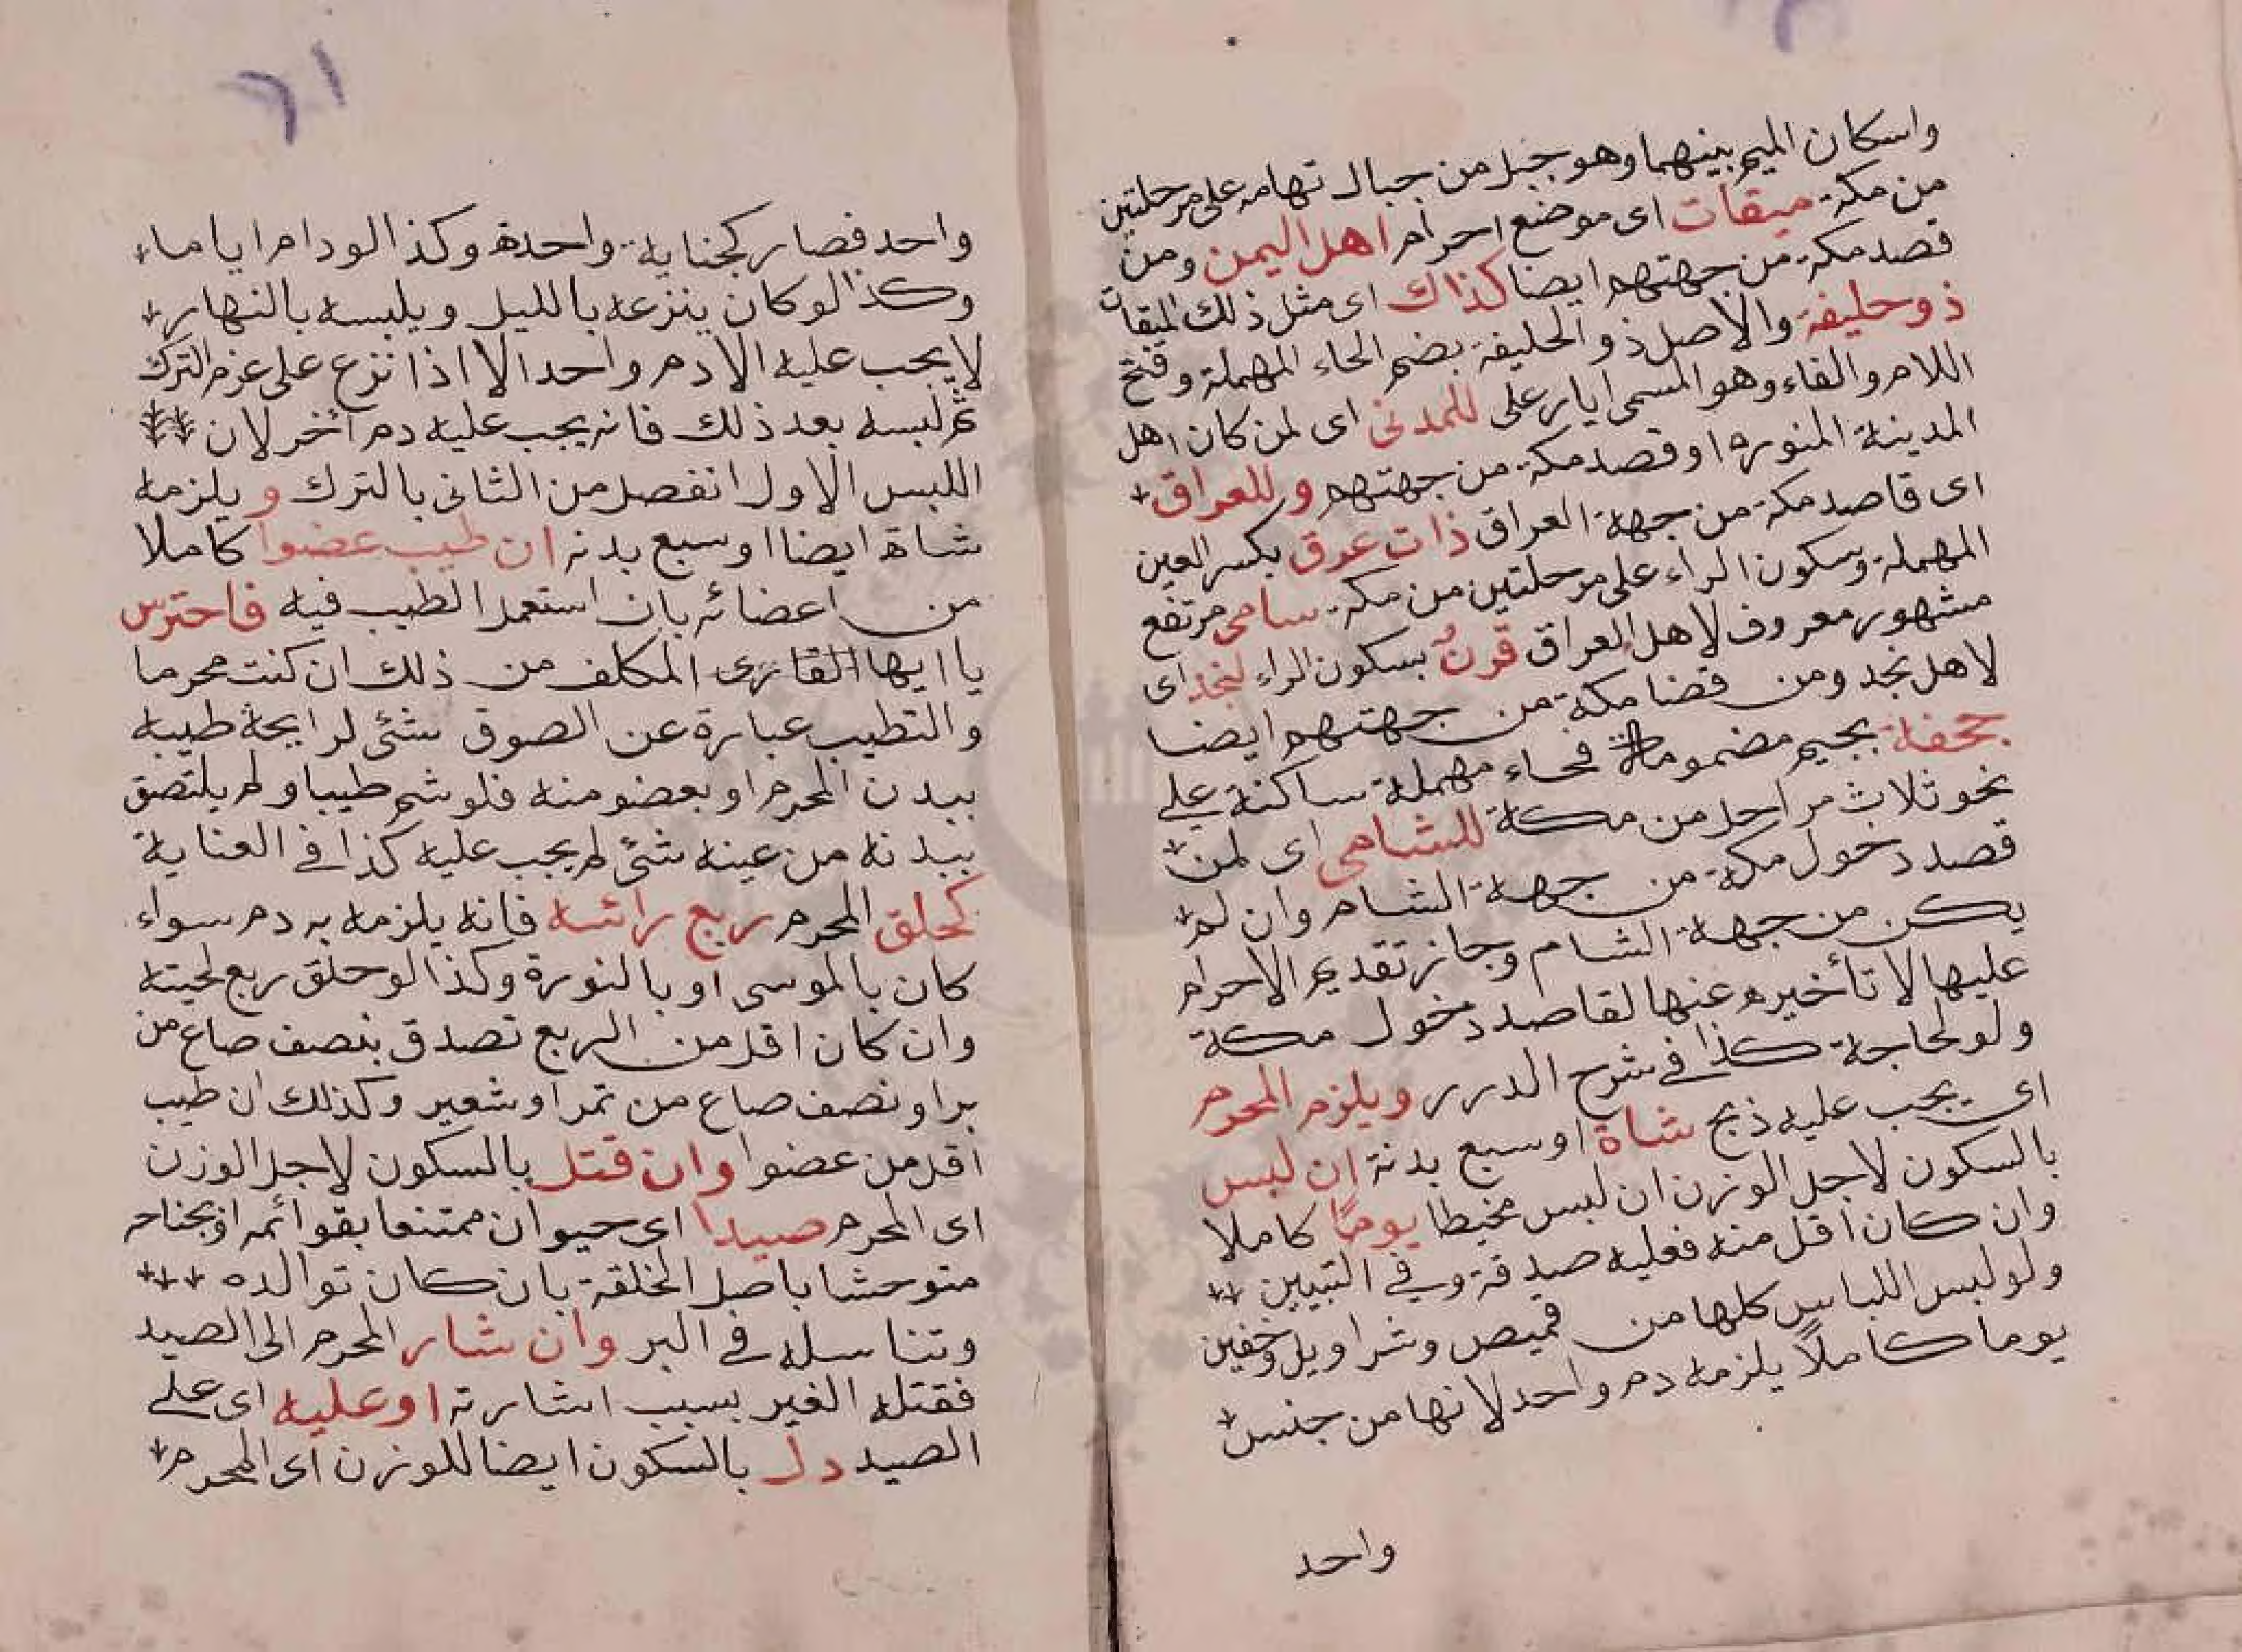 واسكان الميم بينهما وهو جبل من جبال تهامه على مرحلتين
من مكة ميقات اى موضع احرام اهل اليمن ومن
قصد مكة من جهتهم ايضا كذاك اى مثل ذلك الميقات
ذو حليفة والاصل ذو الحليفة بضم الحاء المهملة وفتح
اللام والفاء وهو المسمى ابار على للمدنى اى لمن كان اهل
المدينة المنورة او قصد مكة من جهتهم وللعراق
اى قاصد مكة من جهة العراق ذات عرق بكسر العين
المهملة وسكون الراء على مرحلتين من مكة سامى مرتفع
مشهور معروف لاهل العراق قرنٌ بسكون الراء لنجد اى
لاهل نجد ومن قضا مكة من جهتهم ايضا
جحفة بجيم مضمومة فحاء مهملة ساكنة على
نحو ثلاث مراحل من مكة للشامى اى لمن
قصد دخول مكة من جهة الشام وان لم
يكن من جهة الشام وجاز تقديم الاحرام
عليها لا تأخيره عنها لقاصد دخول مكة
ولو لحاجة كذا فى شرح الدرر ويلزم المحرم
اى يجب عليه ذبح شاة او سبع بدنة ان لبس
بالسكون لاجل الوزن ان لبس مخيطا يومًا كاملا
وان كان اقل منه فعليه صدقة وفى التبيين
ولو لبس اللباس كلها من قميص وشراويل وخفين
يوما كاملًا يلزمه دم واحد لانها من جنس
واحد
٦١
واحد فصار كجناية واحدة وكذا لو دام اياماء
وكذا لو كان ينزعه بالليل ويلبسه بالنهار
لا يجب عليه الا دم واحد الا اذا نزع على عزم الترك
ثم لبسه بعد ذلك فانه يجب عليه دم أخر لان
اللبس الاول انفصل من الثانى بالترك ويلزمه
شاة ايضا او سبع بدنه ان طيب عضوا كاملا
من اعضائه بان استعمل الطيب فيه فاحترس
يا ايها القارى المكلف من ذلك ان كنت محرما
والتطيب عبارة عن الصوق شئى لرايحة طيبه
ببدن المحرم او بعضو منه فلو شم طيبا ولم يلتصق
ببدنه من عينه شئى لم يجب عليه كذا فى العناية
كحلق المحرم ربع رائسه فانه يلزمه به دم سواء
كان بالموسى او بالنورة وكذا لو حلق ربع لحيته
وان كان اقل من الربع تصدق بنصف صاع من
بر او نصف صاع من تمر او شعير وكذلك ان طيب
اقل من عضوا وان قتل بالسكون لاجل الوزن
اى المحرم صيدا اى حيوان ممتنعا بقوائمه او بجناحه
متوحشا باصل الخلقة بان كان توالده
وتناسله فى البر وان شار المحرم الى الصيد
فقتله الغير بسبب اشارته او عليه اى على
الصيد دل بالسكون ايضا للوزن اى المحرم